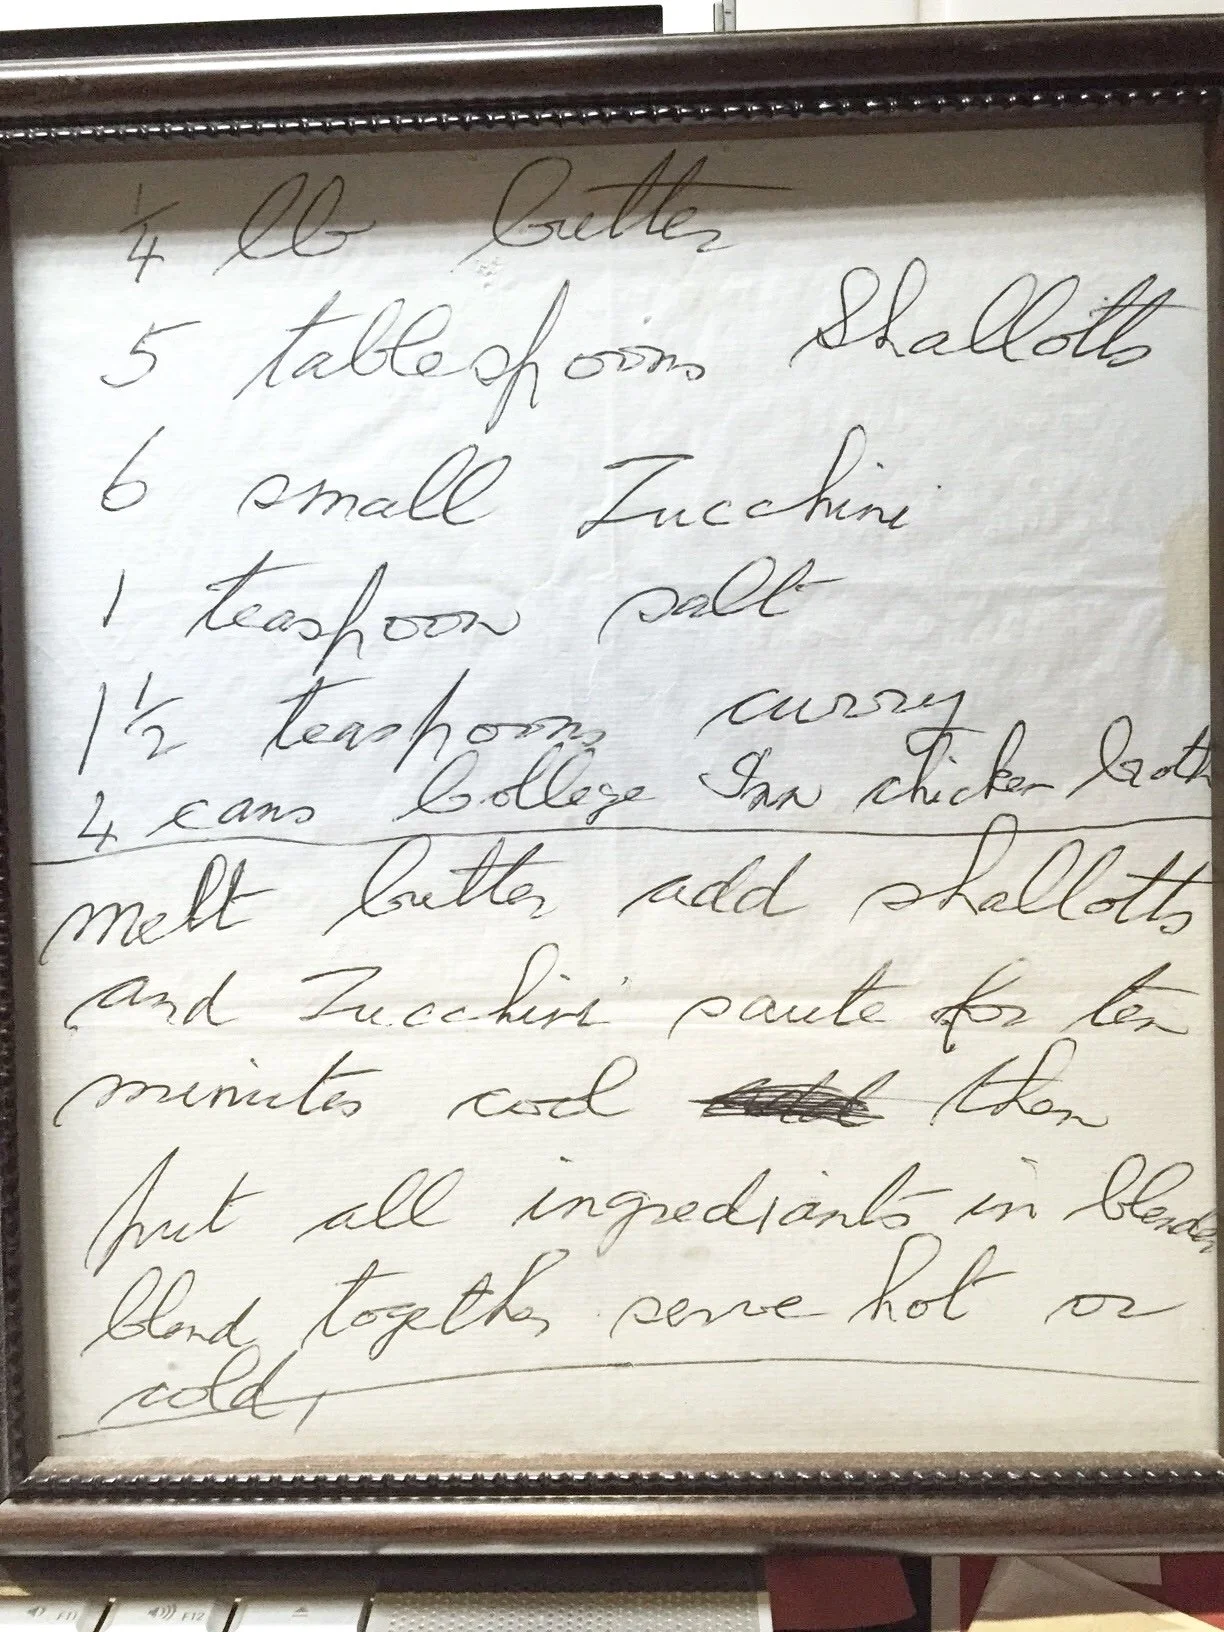 1/4 lb butter
5 tablespoons Shallotts
6 small Zucchini
1 teaspoon salt
1 1/2 teaspoons curry
4 cans College Inn chicken broth
melt butter add shallotts
and Zucchini saute for ten
minutes cool then
put all ingrediants in blender
blend together serve hot or
cold,
F11 F12